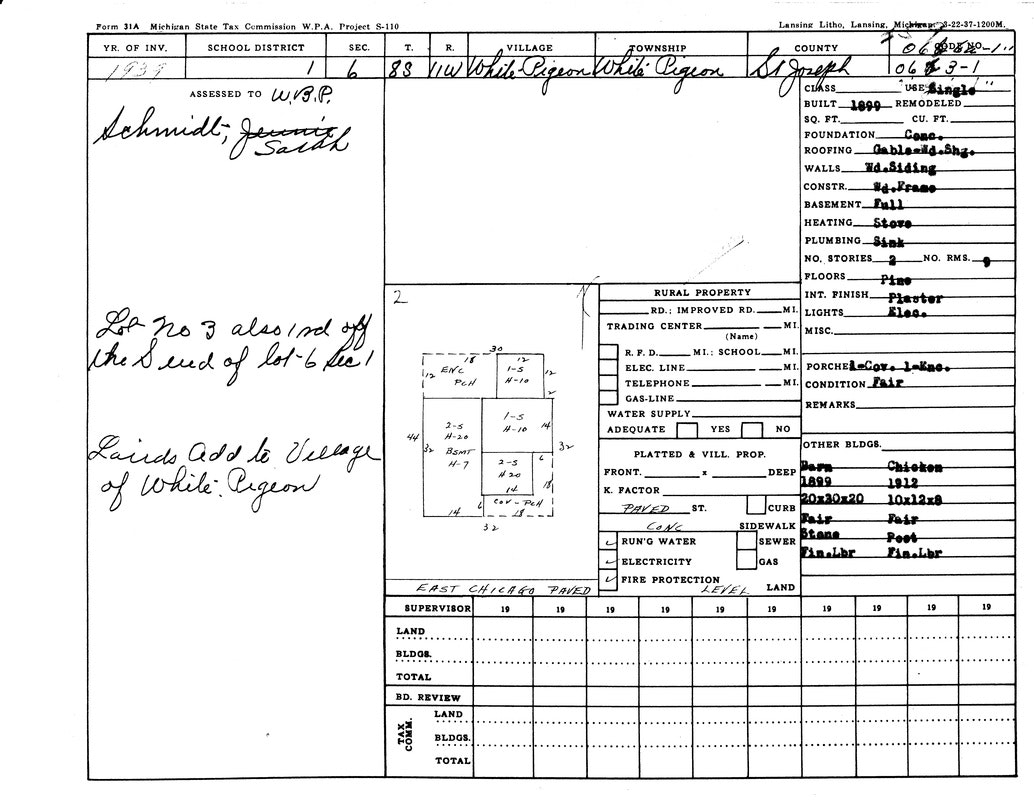 Form 31A Michigan State Tax Commission W.P.A. Project S-110
Lansing Litho, Lansing, Michigan 3-22-37-1200M.
YR. OF INV. SCHOOL DISTRICT SEC. T. R. VILLAGE TOWNSHIP COUNTY CODE NO.
1939 1 6 8S 11W White Pigeon White Pigeon St Joseph 06 3-1
ASSESSED TO W.V.P.
Schmidt, Jennie
Sarah
Lot No 3 also 1 rd off
the S end of lot 6 Sec 1
Lairds Add to Village
of White Pigeon
CLASS USE Single
BUILT 1899 REMODELED
SQ. FT. CU. FT.
FOUNDATION Conc.
ROOFING Gable-Wd.Shg.
WALLS Wd.Siding
CONSTR. Wd.Frame
BASEMENT Full
HEATING Stove
PLUMBING Sink
NO. STORIES 2 NO. RMS. 9
FLOORS Pine
INT. FINISH Plaster
LIGHTS Elec.
MISC.
PORCHES 1-Cov. 1-Enc.
CONDITION Fair
REMARKS
OTHER BLDGS.
Barn Chicken
1899 1912
20x30x20 10x12x8
Fair Fair
Stone Post
Fin.Lbr Fin.Lbr
2
N
30
18 12
12 ENC 1-S 12
PCH H-10
2
44 32 2-S 1-S 14 32
H-20 H-10
BSMT
H-7
2-S 6
H 20
14 18
6 COV-PCH
14 18
32
EAST CHICAGO PAVED
RURAL PROPERTY
RD.; IMPROVED RD. MI.
TRADING CENTER MI.
(Name)
R. F. D. MI.; SCHOOL MI.
ELEC. LINE MI.
TELEPHONE MI.
GAS-LINE
WATER SUPPLY
ADEQUATE YES NO
PLATTED & VILL. PROP.
FRONT. x DEEP
K. FACTOR
PAVED ST. CURB
CONC SIDEWALK
✓ RUN'G WATER SEWER
✓ ELECTRICITY GAS
✓ FIRE PROTECTION
LEVEL LAND
SUPERVISOR 19 19 19 19 19 19 19
LAND
BLDGS.
TOTAL
BD. REVIEW
TAX COMM.
LAND
BLDGS.
TOTAL